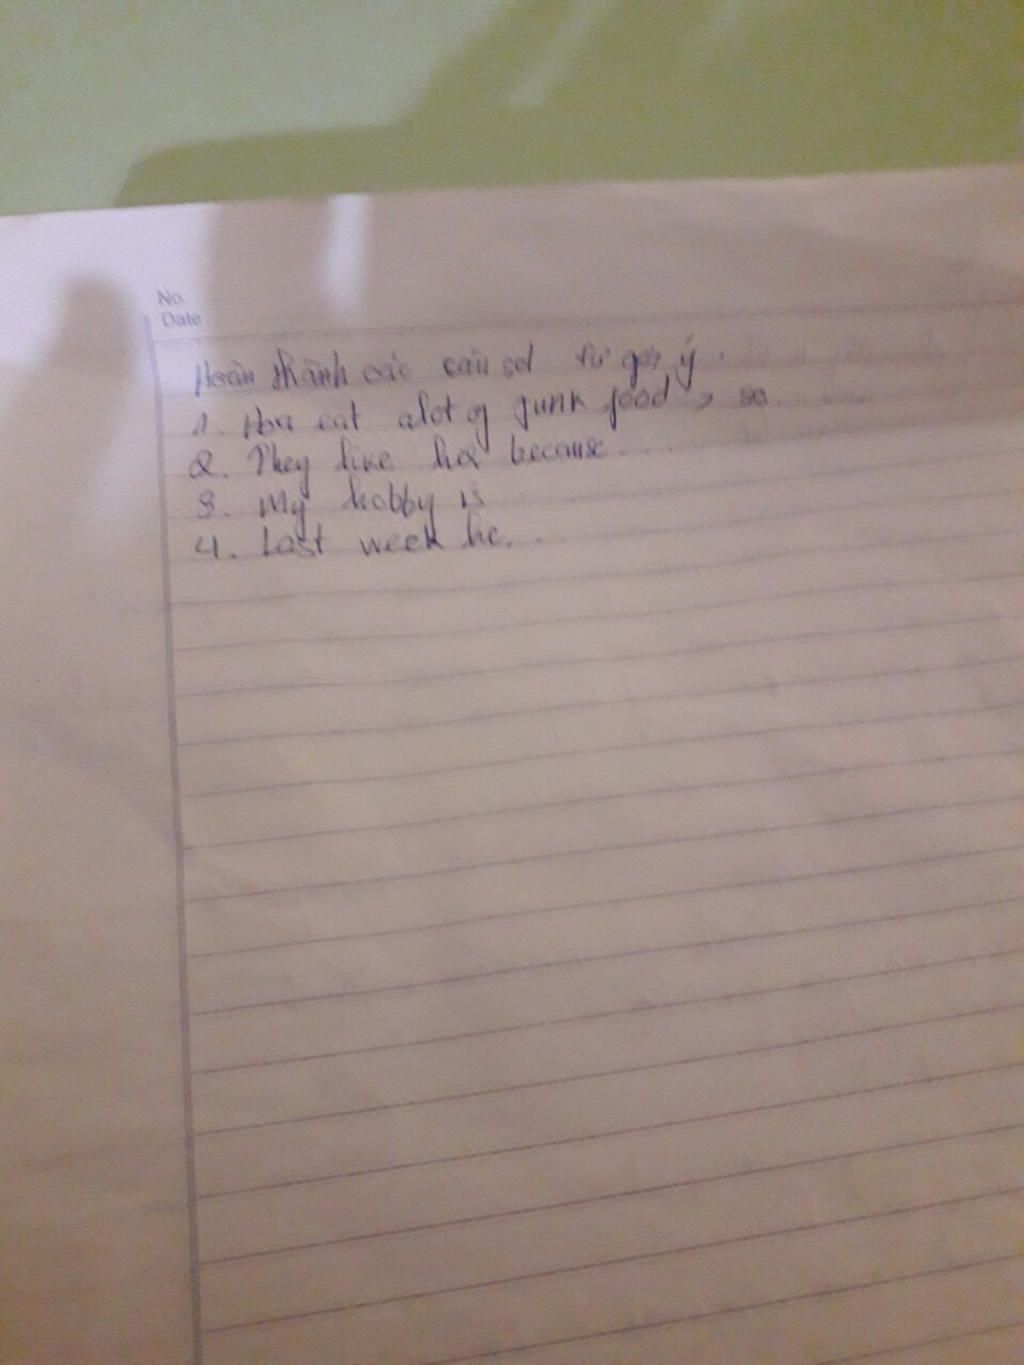 No.
Date
Hoàn thành các câu sd từ gợi ý.
1. Hoa eat alot of junk food, so
2. They like her because...
3. My hobby is
4. Last week he...